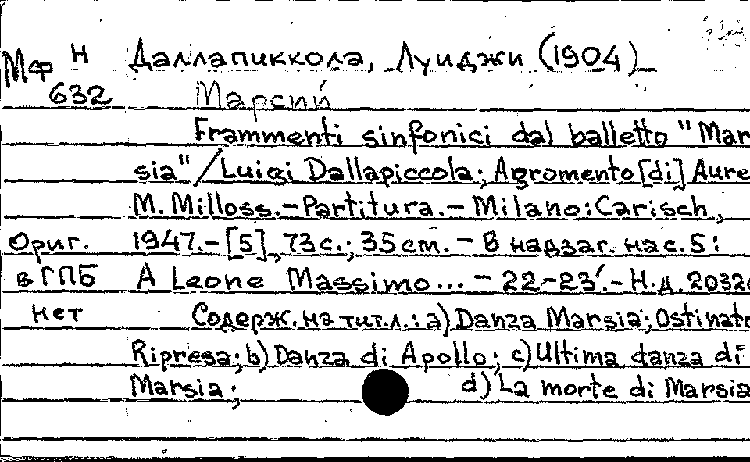 Мф Н Даллапиккола, Луиджи (1904)
632 Марсий
Frammenti sinfonici dal balletto "Mar
sia" / Luigi Dallapiccola; Agromento [di] Aure
M. Milloss. – Partitura. – Milano: Carisch,
Ориг. 1947. – [5], 73 с.; 35 cm. – В надзаг. на с. 5:
в ГПБ A Leone Massimo... – 22–23'. – Н.д. 2032
нет Содерж. на тит. л.: a) Danza Marsia; Ostinato
Ripresa; b) Danza di Apollo; c) Ultima danza di
Marsia; d) La morte di Marsia